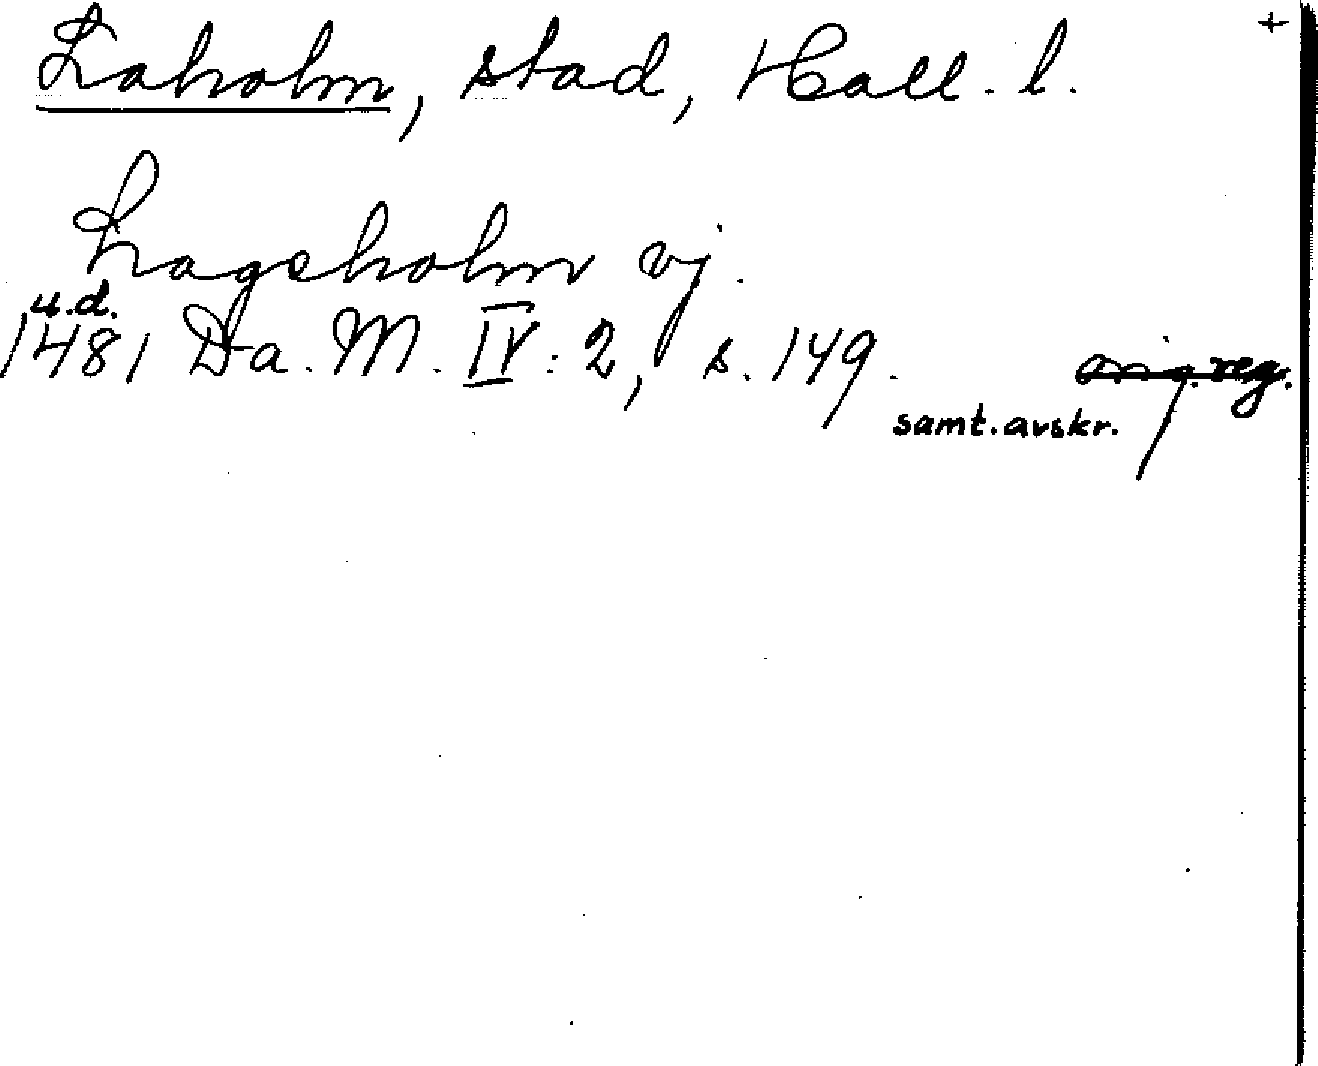 Laholm, stad, Hall. l. +
Lagsholm vj.
u.d.
1481 Da. M. IV: 2, s. 149. orig. reg.
samt. avskr.